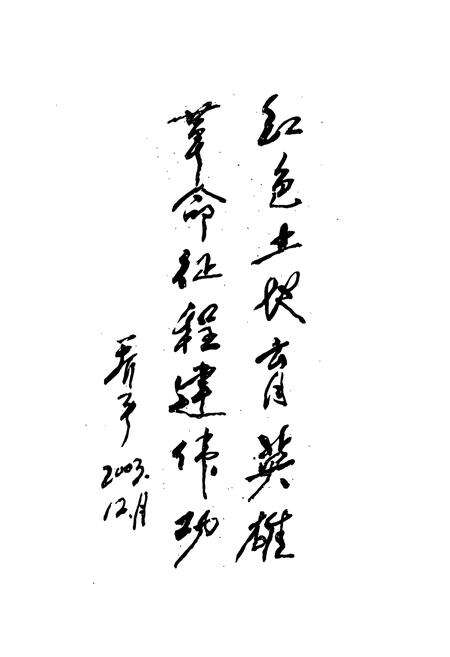 红色土地育英雄
革命征程建伟功
2003.
12.月